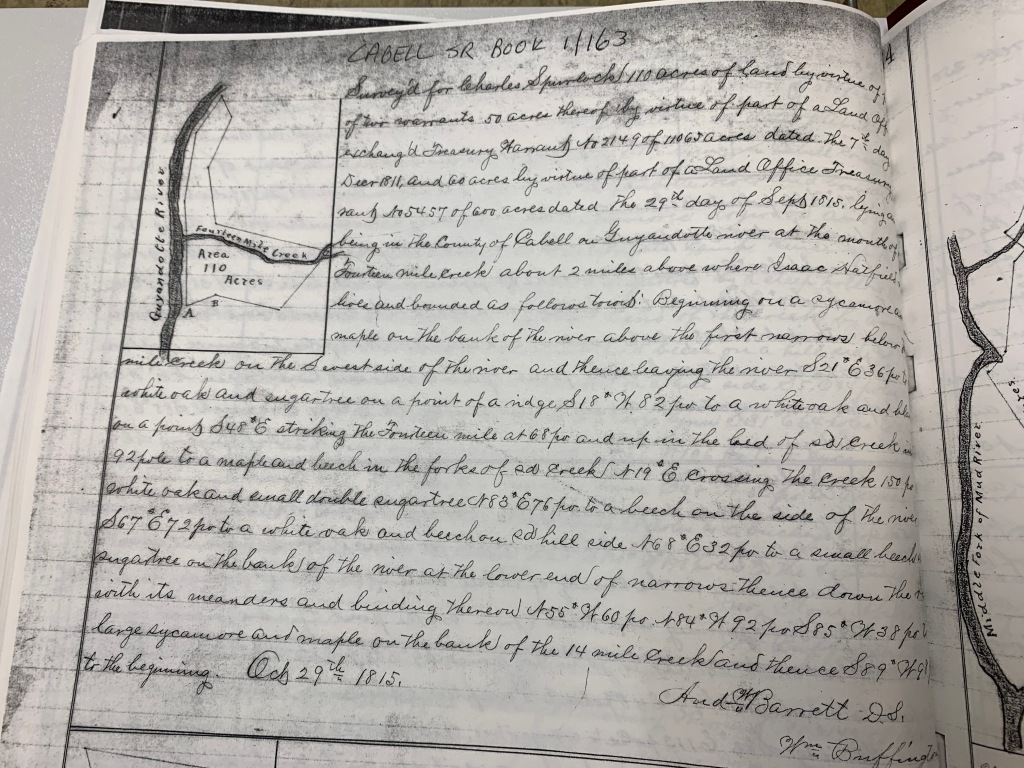 CABELL SR BOOK 1/163
Survey'd for Charles Spurlock 110 acres of land by virtue of
of two warrants 50 acres thereof by virtue of part of a Land Off
exchang'd Treasury Warrant No 2149 of 11065 acres dated the 7th day
Decr 1811, and 60 acres by virtue of part of a Land Office Treasury
rant No 5457 of 600 acres dated the 29th day of Sept 1815, lying
being in the County of Cabell on Guyandotte river at the mouth of
Fourteen mile creek about 2 miles above where Isaac Hatfield
lives and bounded as follows towit: Beginning on a sycamore
maple on the bank of the river above the first narrows below
mile creek on the S west side of the river and thence leaving the river S21°E 36 po
white oak and sugartree on a point of a ridge S18°W 82 po to a white oak and
on a point S48°E striking the Fourteen mile at 68 po and up in the bed of sd creek
92 pole to a maple and beech in the forks of sd creek N19°E crossing the creek 150 po
white oak and small double sugartree N83°E 76 po. to a beech on the side of the
S67°E 72 po to a white oak and beech on sd hill side N68°E 32 po to a small beech
sugartree on the bank of the river at the lower end of narrows thence down the
with its meanders and binding thereon N55°W 60 po N84°W 92 po S85°W 38 po
large sycamore and maple on the bank of the 14 mile creek and thence S89°W
to the beginning. Oct 29th 1815.
Andw Barrett D.S.
Wm Buffington
Guyandotte River
Fourteen Mile Creek
Area
110
Acres
A
B
4
Middle Fork of Mud River.